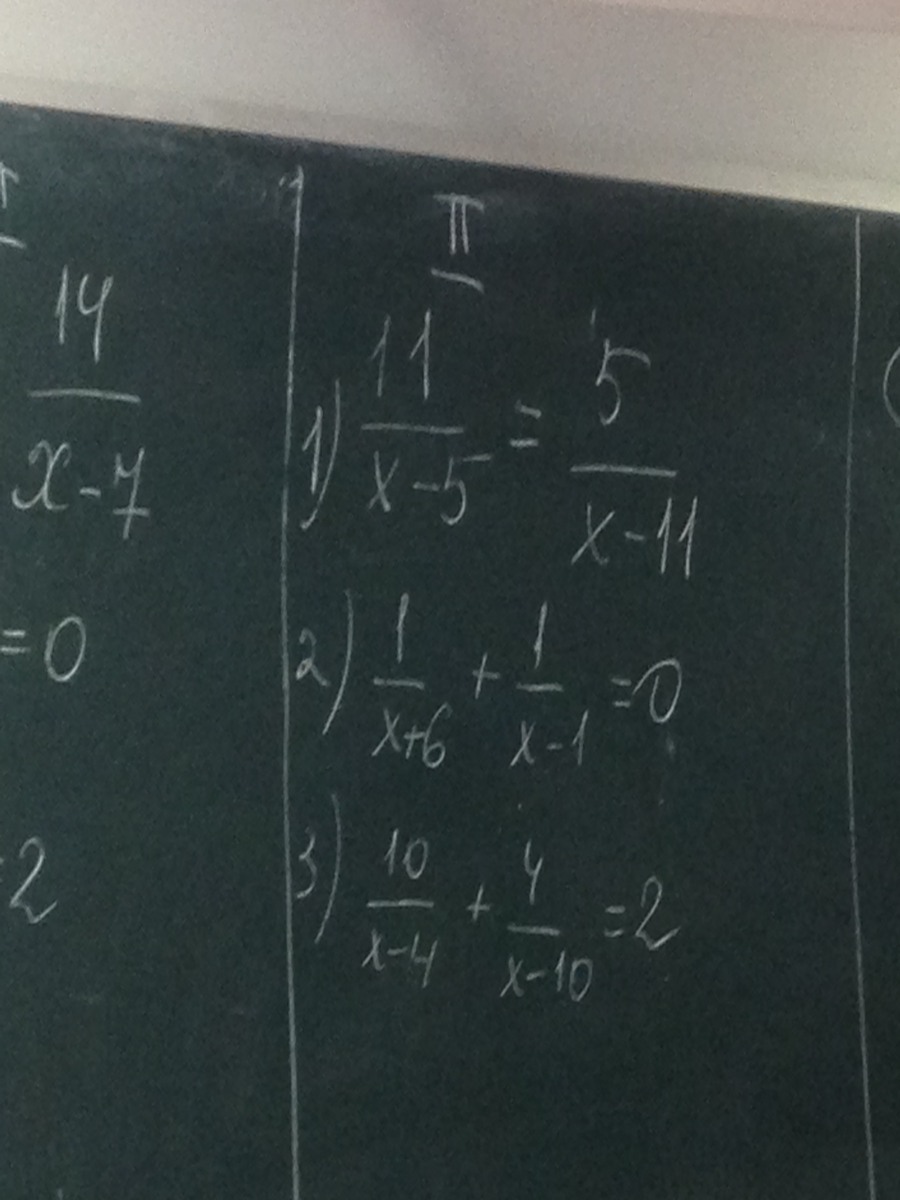 I
14
x-7
=0
=2
II
1) 11/(x-5) = 5/(x-11)
2) 1/(x+6) + 1/(x-1) =0
3) 10/(x-4) + 4/(x-10) =2